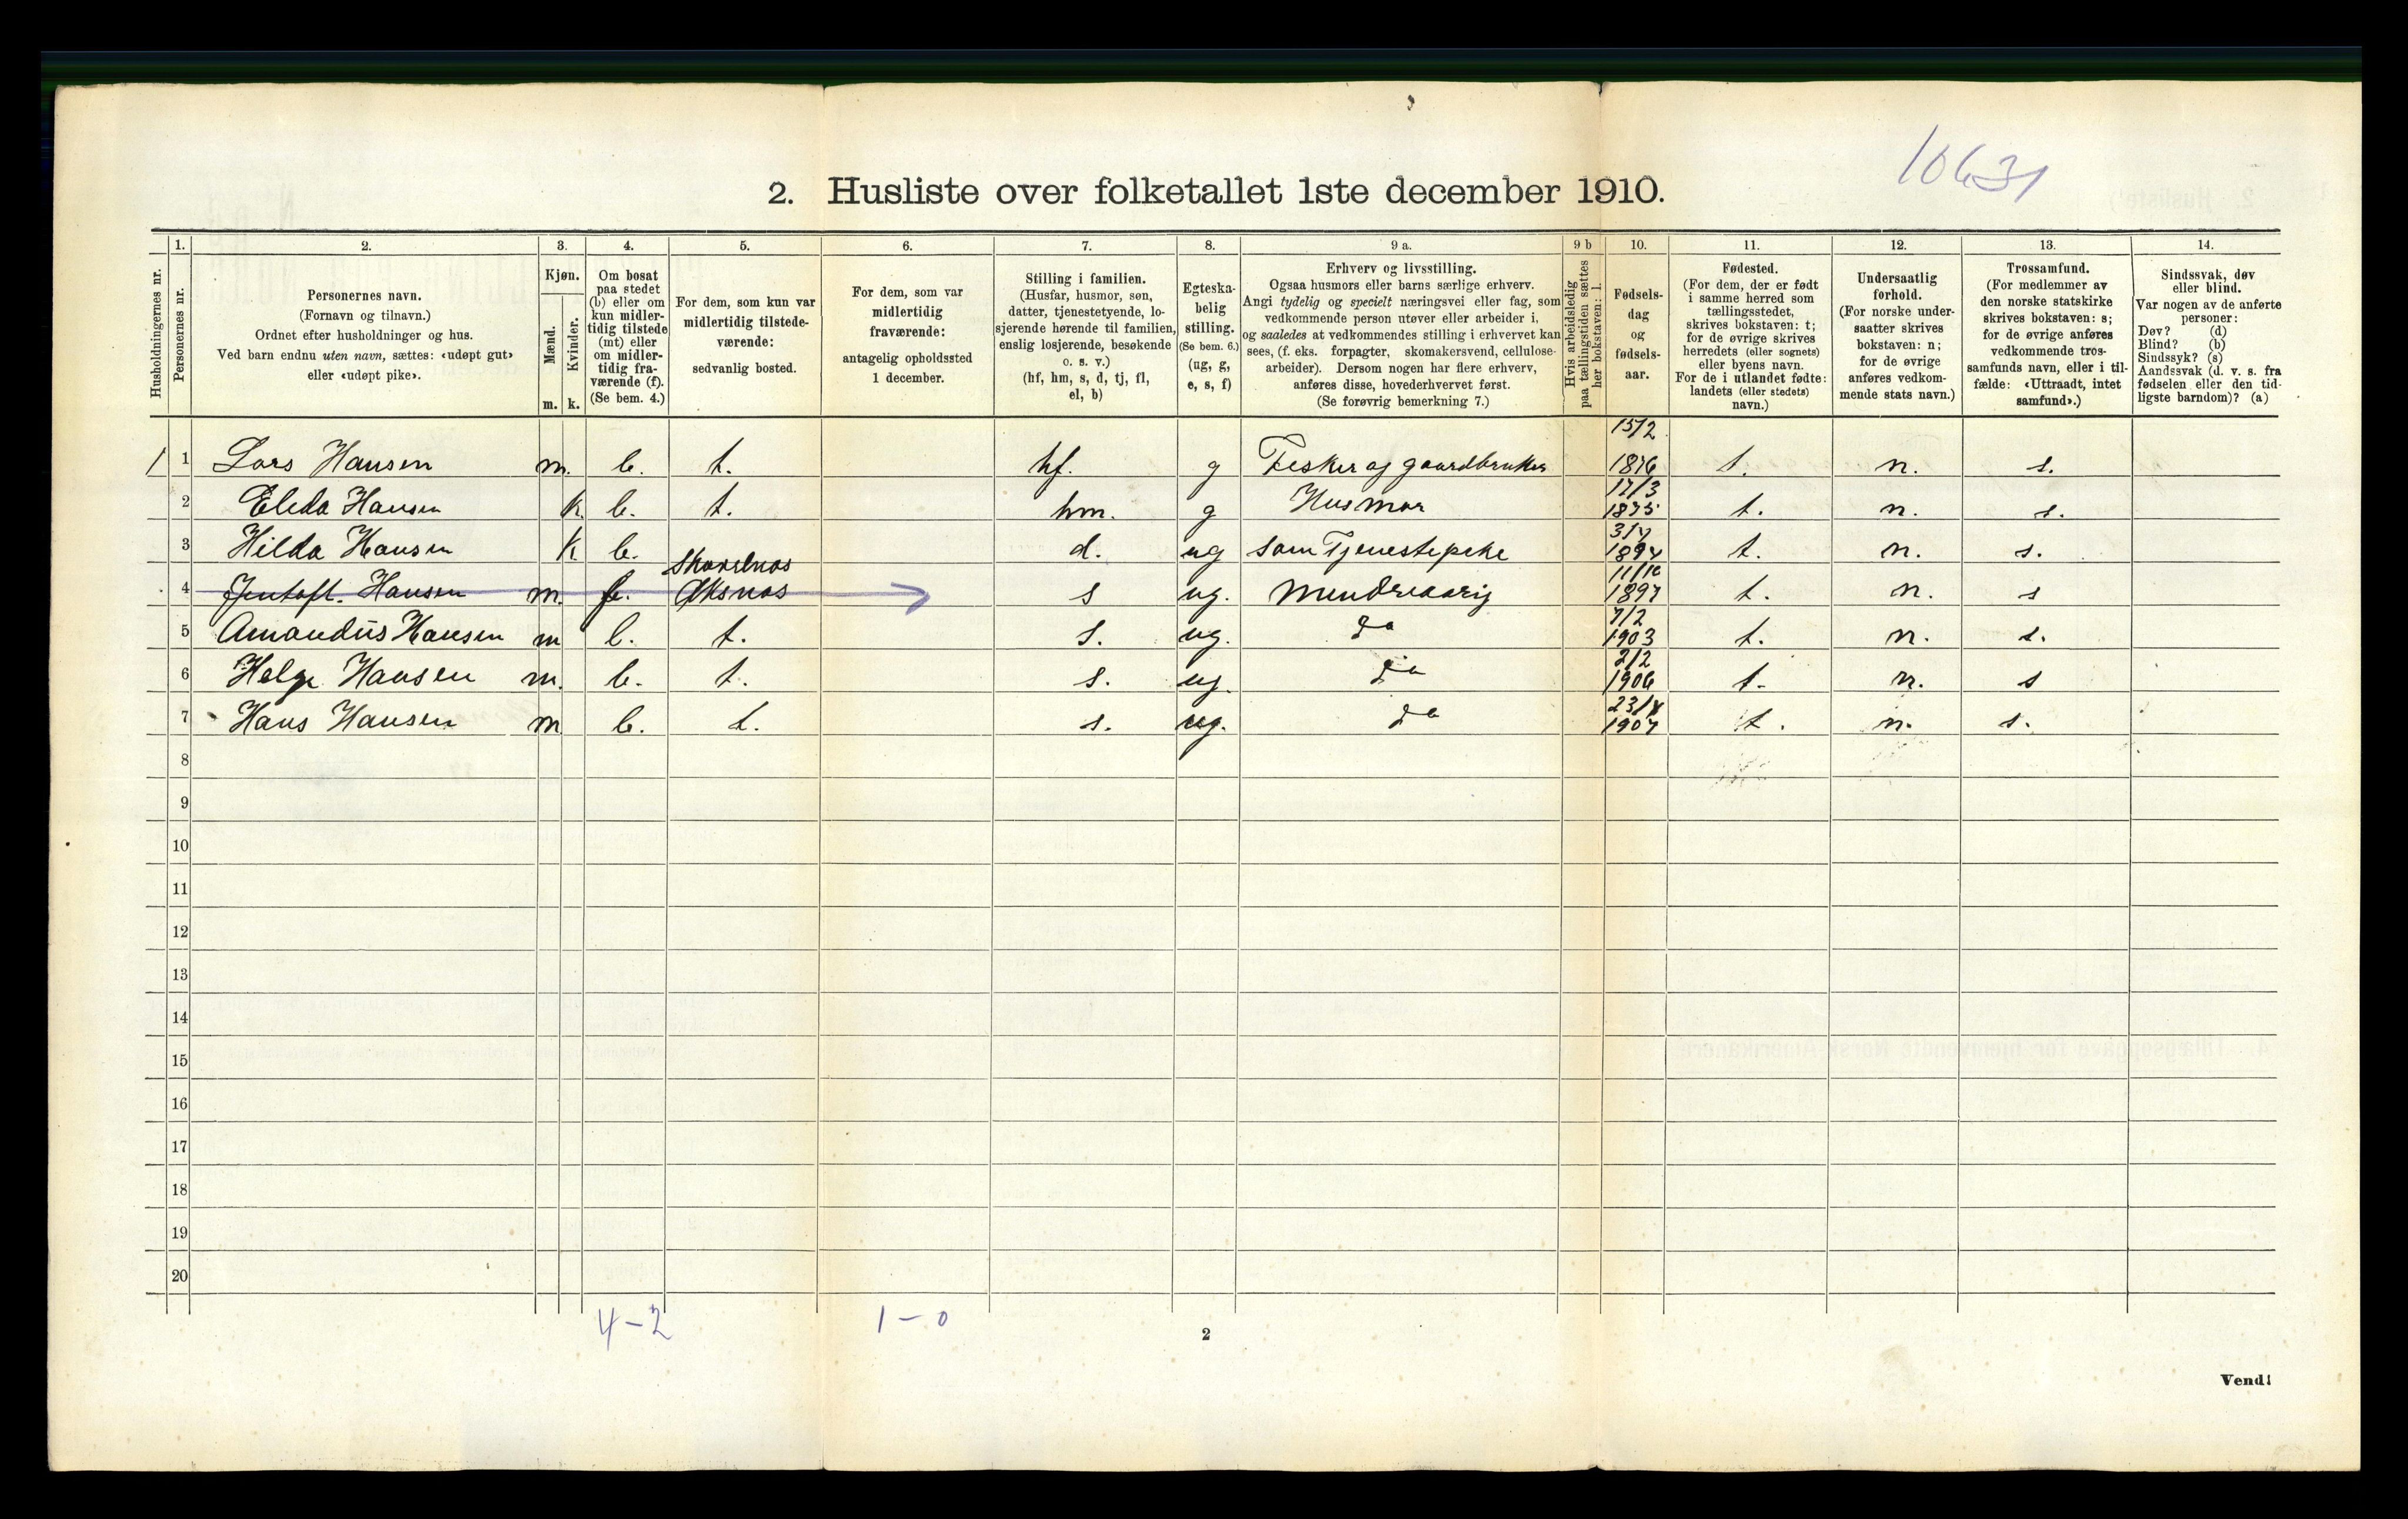 10631
2. Husliste over folketallet 1ste december 1910.
Husholdningernes nr.
1. Personernes nr.
2. Personernes navn.
(Fornavn og tilnavn.)
Ordnet efter husholdninger og hus.
Ved barn endnu uten navn, sættes: «udøpt gut»
eller «udøpt pike».
3. Kjøn.
Mænd. m.
Kvinder. k.
4. Om bosat
paa stedet
(b) eller om
kun midler-
tidig tilstede
(mt) eller
om midler-
tidig fra-
værende (f).
(Se bem. 4.)
5. For dem, som kun var
midlertidig tilstede-
værende:
sedvanlig bosted.
6. For dem, som var
midlertidig
fraværende:
antagelig opholdssted
1 december.
7. Stilling i familien.
(Husfar, husmor, søn,
datter, tjenestetyende, lo-
sjerende hørende til familien,
enslig losjerende, besøkende
o. s. v.)
(hf, hm, s, d, tj, fl,
el, b)
8. Egteska-
belig
stilling.
(Se bem. 6.)
(ug, g,
e, s, f)
9 a. Erhverv og livsstilling.
Ogsaa husmors eller barns særlige erhverv.
Angi tydelig og specielt næringsvei eller fag, som
vedkommende person utøver eller arbeider i,
og saaledes at vedkommendes stilling i erhvervet kan
sees, (f. eks. forpagter, skomakersvend, cellulose-
arbeider). Dersom nogen har flere erhverv,
anføres disse, hovederhvervet først.
(Se forøvrig bemerkning 7.)
9 b Hvis arbeidsledig
paa tællingstiden sættes
her bokstaven: l.
10. Fødsels-
dag
og
fødsels-
aar.
11. Fødested.
(For dem, der er født
i samme herred som
tællingsstedet,
skrives bokstaven: t;
for de øvrige skrives
herredets (eller sognets)
eller byens navn.
For de i utlandet fødte:
landets (eller stedets)
navn.)
12. Undersaatlig
forhold.
(For norske under-
saatter skrives
bokstaven: n;
for de øvrige
anføres vedkom-
mende stats navn.)
13. Trossamfund.
(For medlemmer av
den norske statskirke
skrives bokstaven: s;
for de øvrige anføres
vedkommende tros-
samfunds navn, eller i til-
fælde: «Uttraadt, intet
samfund».)
14. Sindssvak, døv
eller blind.
Var nogen av de anførte
personer:
Døv? (d)
Blind? (b)
Sindssyk? (s)
Aandssvak (d. v. s. fra
fødselen eller den tid-
ligste barndom)? (a)
1 1 Lars Hansen m. b. t. hf. g Fesker og gaardbruker 15/2 1876 t. n. s.
2 Eleda Hansen k. b. t. hm. g Husmor 17/3 1875 t. n. s.
3 Hilda Hansen k b. d. ug som Tjenestepike 1894 t. n. s.
4 Jentoft. Hansen m. f. Øksnes s ug. Mindreaarig 11/10 1897 t. n. s
5 Amandus Hansen m b. t. s. ug. Do 7/2 1903 t. n. s.
6 Helge Hansen m. b. t. s. ug. Do 2/2 1906 t. n. s
7 Hans Hansen m b. t. s. ug. Do 1907 t. n. s.
8
9
10
11
12
13
14
15
16
17
18
19
20
4-2 1-0
2
Vend!